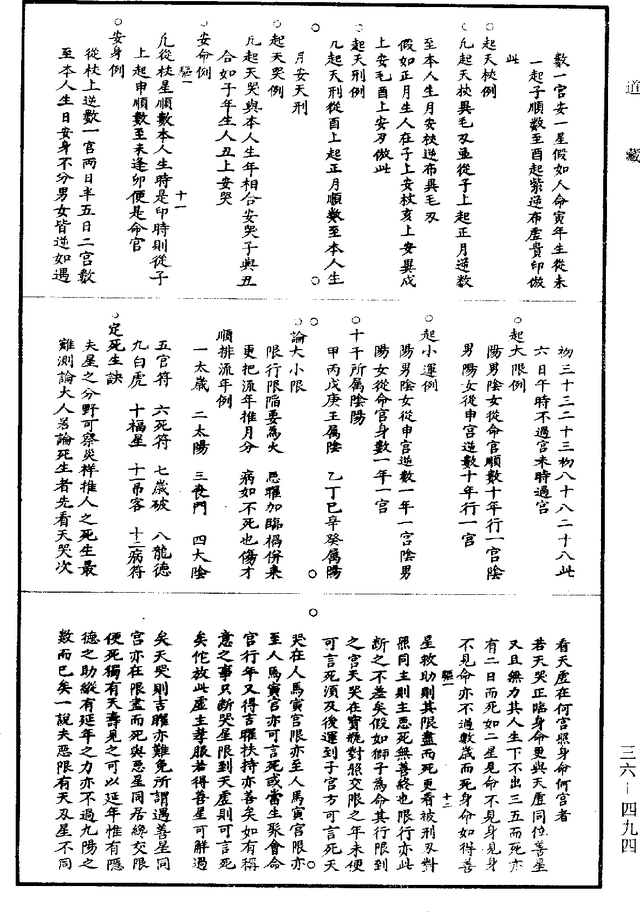 道藏
數一宮安一星假如人命寅年生從未
一起子順數至酉起紫逆布虛貴印倣
此
○起天杖例
凡起天杖異毛刃並從子上起正月逆數
至本人生月安杖逆布異毛刃
假如正月生人在子上安杖亥上安異戌
上安毛酉上安刃倣此
○起天刑例
凡起天刑從酉上起正月順數至本人生
月安天刑
○起天哭例
凡起天哭與本人生年相合安哭子與丑
合如子年生人丑上安哭
○安命例
凡從杖星順數本人生時是卯時則從子
驅一　十一
上起申順數至未逢卯便是命宮
○安身例
從杖上逆數一宮兩日半五日二宮數
至本人生日安身不分男女皆逆如遇
初三十三二十三初八十八二十八此
六日午時不過宮未時過宮
○起大限例
陽男陰女從命宮順數十年行一宮陰
男陽女從申宮逆數十年行一宮
○起小運例
陽男陰女從申宮逆數一年一宮陰男
陽女從命宮身數一年一宮
○十干所屬陰陽
甲丙戊庚壬屬陰　乙丁巳辛癸屬陽
○論大小限
限行限陷要為火　惡曜加臨禍併來
更把流年推月分　病如不死也傷才
順排流年例
一太歲　二太陽　三喪門　四太陰
五官符　六死符　七歲破　八龍德
九白虎　十福星　十一吊客　十二病符
○定死生訣
夫星之分野可察災祥推人之死生最
難測論大人若論死生者先看天哭次
看天虛在何宮照身命何宮者
若天哭正臨身命更與天虛同位善星
又且無力其人生下不出三五而死亦
有二日而死如二星見命不見身見身
不見命亦不過數歲而死身命如得善
驅一　十二
星救助則其限盡而死更看被刑刃對
照同主則主惡死無善終也限行亦此
斷之不差矣假如獅子為命其行限到
之宮天哭在寶瓶對照交限之年未便
可言死須及後運到子宮方可言死天
哭在人馬寅宮限亦至人馬寅宮限亦
至人馬寅宮亦可言死或當生聚會命
宮行年又得吉曜扶持亦善矣如有稱
意之事只斷哭星限到天虛則可言死
矣佗放此虛主孝服若得善星可解過
矣天哭則吉曜亦難免所謂遇善星同
宮亦在限盡而死與惡星同若終交限
便死獨有天壽見之可以延年惟有隱
德之助縱有延年之力亦不過九陽之
數而已矣一說夫惡限有天刃星不同
三六—四九四